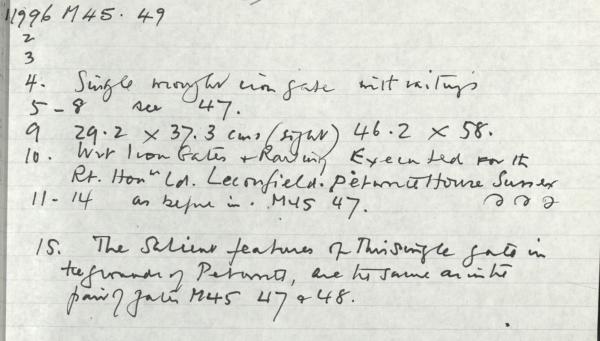 1996 M45. 49
2
3
4. Single wrought iron gate with railings
5-8 see 47.
9 29.2 x 37.3 cms (sight) 46.2 x 58.
10. Wrt Iron Gates & Railing Executed for the
Rt. Honble Ld. Leconfield. Petworth House Sussex
11-14 as before in. M45 47.
15. The Salient features of this single gate in
the grounds of Petworth, are the same as in the
pair of gates M45 47 & 48.